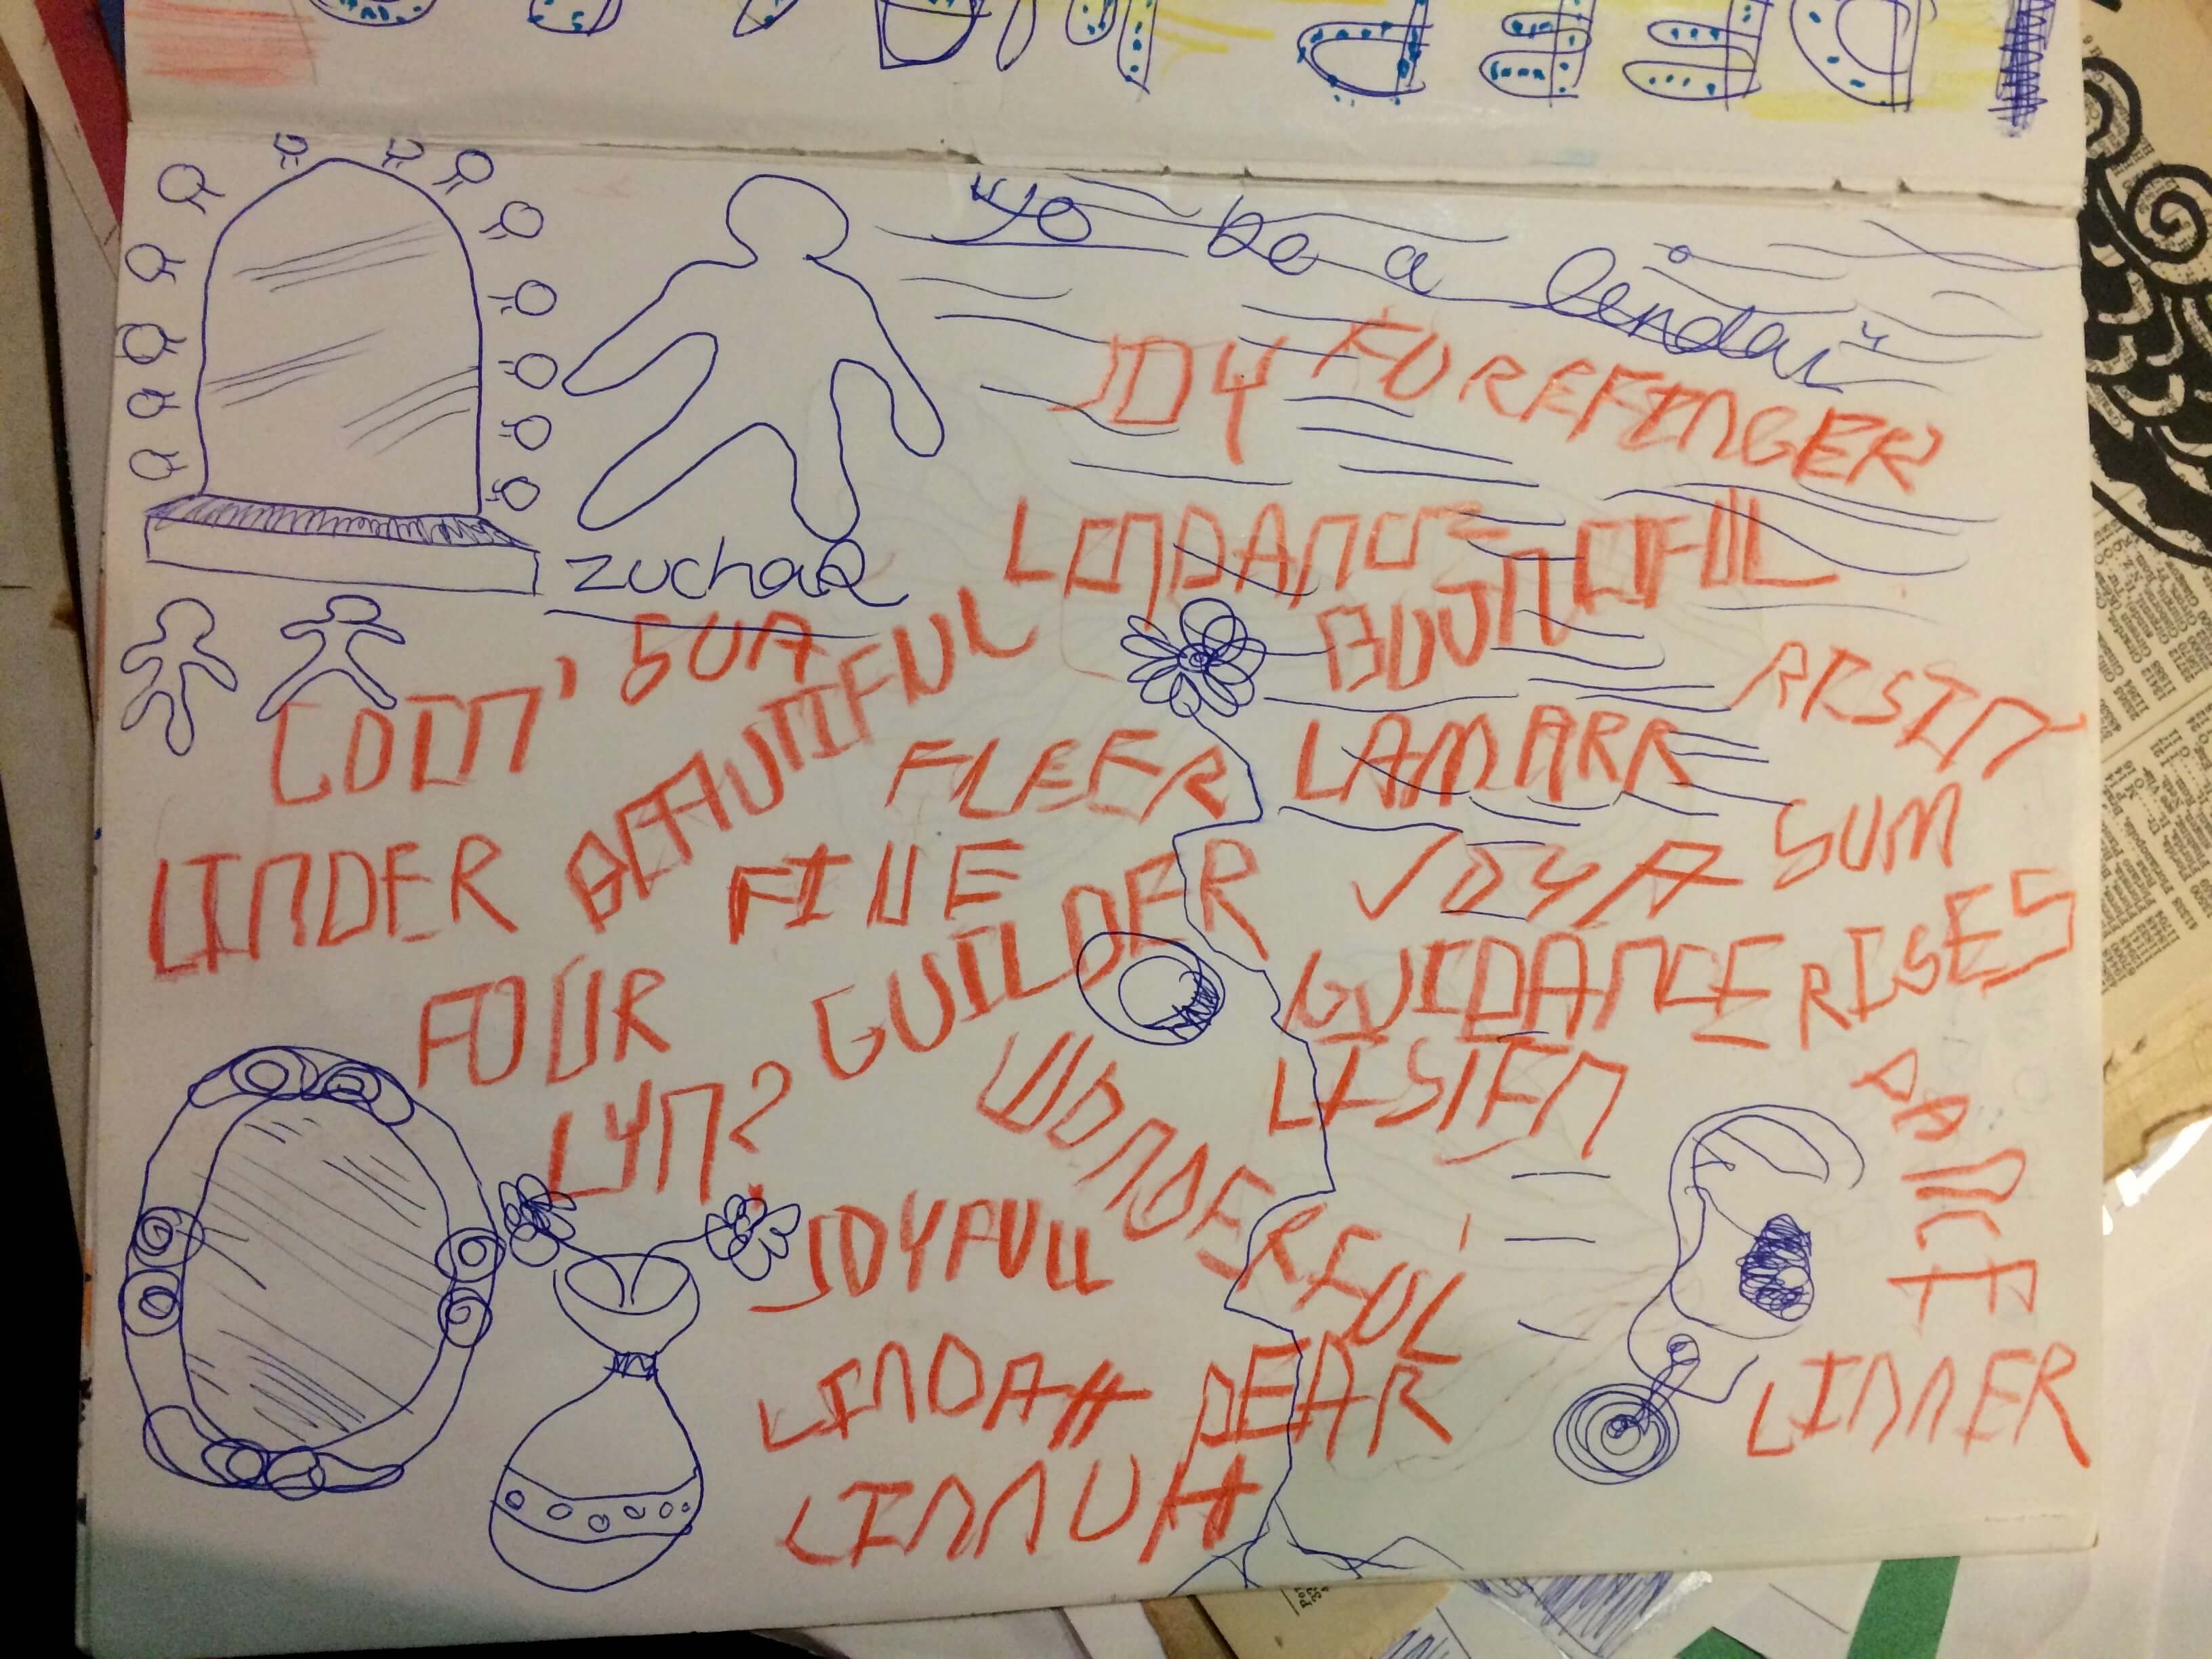 "yo be a lendar"
JOY FOREFINGER
LENDANCE
BOUNTIFUL
zuchaR
SUA
BEAUTIFUL
RISIN
FLEER
LAMARR
LINDER
FINE
JOYA
SUM
FOUR
GUILDER
GUIDANCE RISES
LISTEN
LYN?
WONDERFUL
JOYFULL
LINDAH DEAR
LINNER
LINNUH